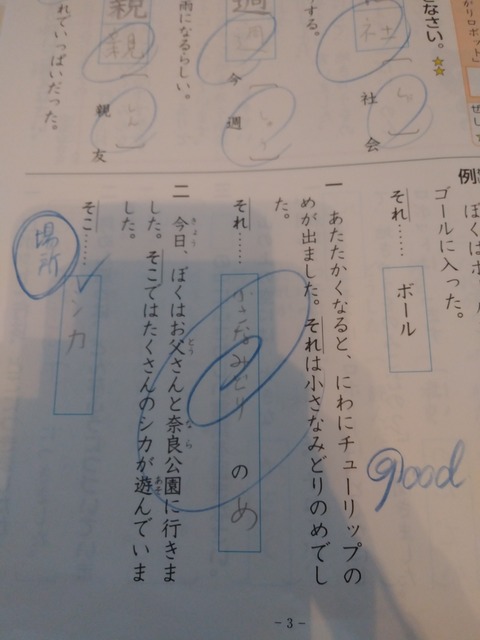 なさい。★★
社
する。
社会
週
雨になるらしい。
今週
しゅう
親
親
れていっぱいだった。
親友
しん
例
ゴールに入った。
それ……
ボール
good
一
あたたかくなると、にわにチューリップの
めが出ました。それは小さなみどりのめでし
た。
それ……
小さなみどり の め
二
今日、ぼくはお父さんと奈良公園に行きま
きょう とう なら
した。そこではたくさんのシカが遊んでいま
あそ
した。
そこ……
シカ
場所
-3-